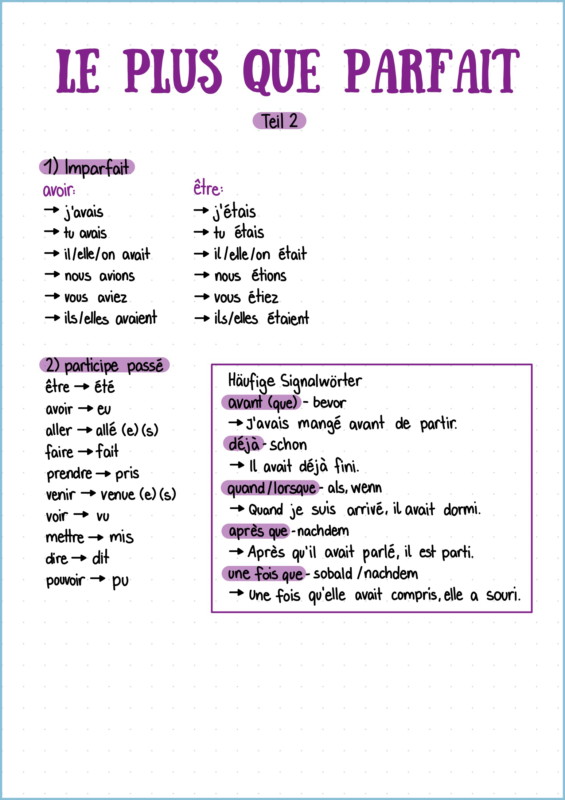 LE PLUS QUE PARFAIT
Teil 2
1) Imparfait
avoir:
→ j'avais
→ tu avais
→ il/elle/on avait
→ nous avions
→ vous aviez
→ ils/elles avaient
être:
→ j'étais
→ tu étais
→ il/elle/on était
→ nous étions
→ vous étiez
→ ils/elles étaient
2) participe passé
être → été
avoir → eu
aller → allé (e)(s)
faire → fait
prendre → pris
venir → venue (e)(s)
voir → vu
mettre → mis
dire → dit
pouvoir → pu
Häufige Signalwörter
avant (que) - bevor
→ J'avais mangé avant de partir.
déjà - schon
→ Il avait déjà fini.
quand/lorsque - als, wenn
→ Quand je suis arrivé, il avait dormi.
après que - nachdem
→ Après qu'il avait parlé, il est parti.
une fois que - sobald/nachdem
→ Une fois qu'elle avait compris, elle a souri.